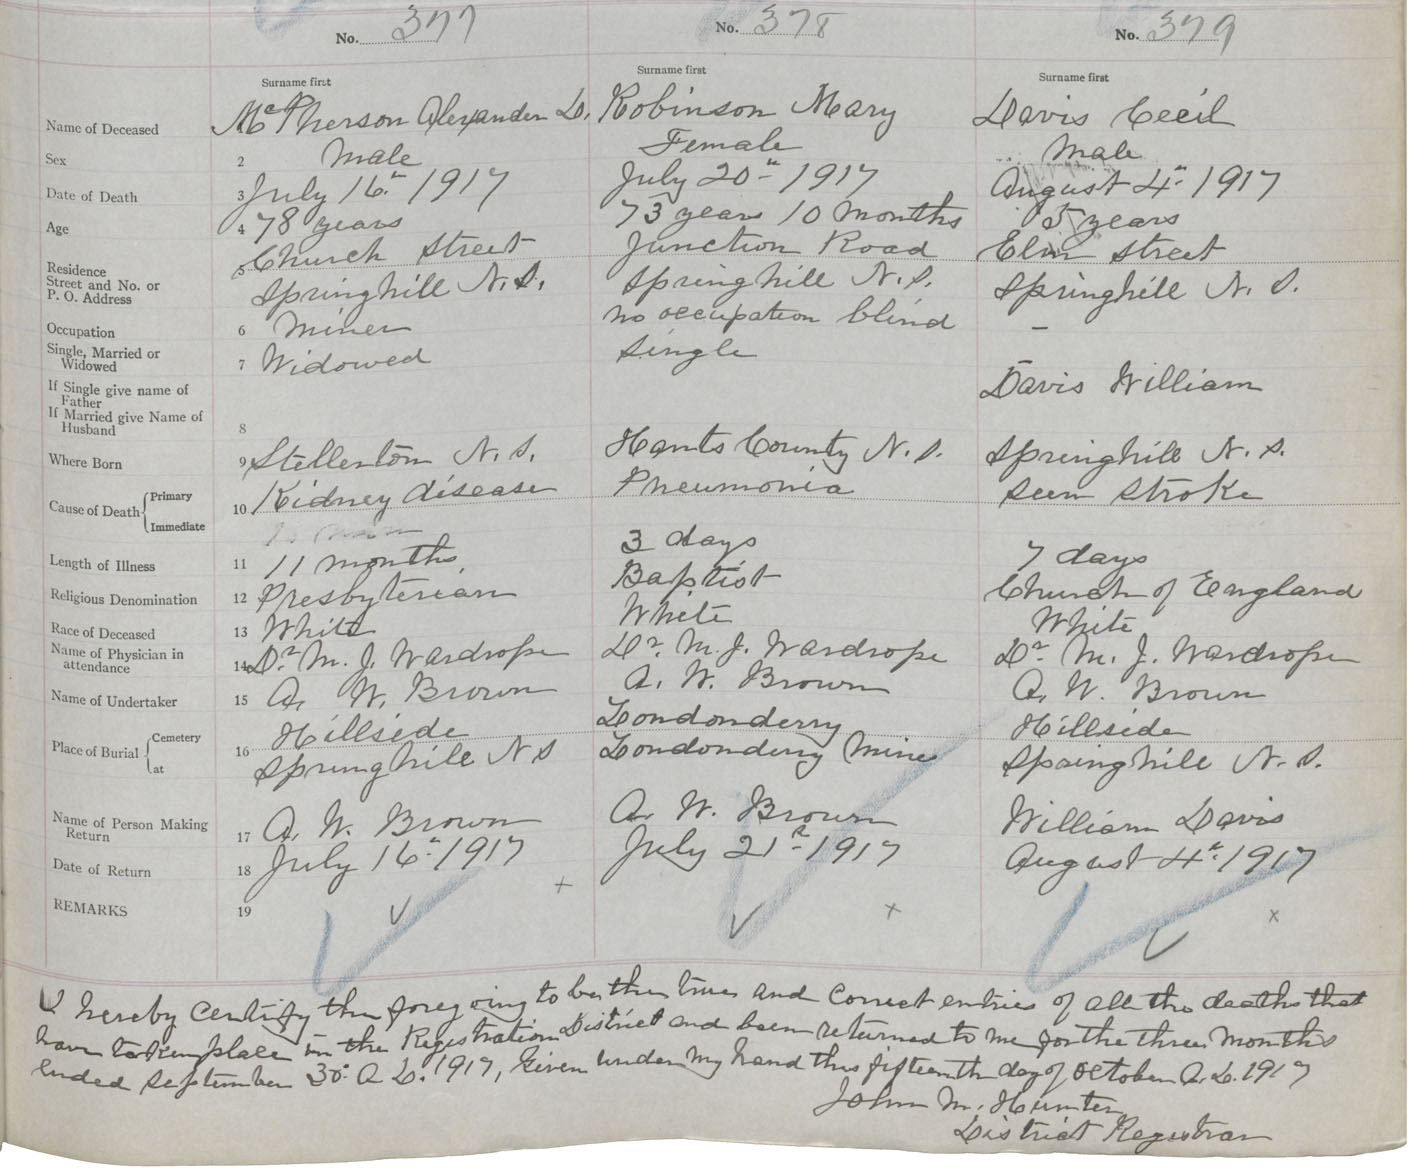 No. 377 No. 378 No. 379
Surname first Surname first Surname first
Name of Deceased 1 McPherson Alexander D. Robinson Mary Davis Cecil
Sex 2 Male Female Male
Date of Death 3 July 16th 1917 July 20th 1917 August 4th 1917
Age 4 78 years 73 years 10 months 5 years
Residence Street and No. or P. O. Address 5 Church Street Junction Road Elm Street
Springhill N.S. Springhill N.S. Springhill N.S.
Occupation 6 Miner no occupation blind –
Single, Married or Widowed 7 Widowed Single –
If Single give name of Father Davis William
If Married give Name of Husband 8
Where Born 9 Stellerton N.S. Hants County N.S. Springhill N.S.
Cause of Death { Primary 10 Kidney disease Pneumonia Seun Stroke
Immediate
Length of Illness 11 11 months 3 days 7 days
Religious Denomination 12 Presbyterian Baptist Church of England
Race of Deceased 13 White White White
Name of Physician in attendance 14 Dr. M. J. Wardrope Dr. M. J. Wardrope Dr. M. J. Wardrope
Name of Undertaker 15 A. W. Brown A. W. Brown A. W. Brown
Place of Burial { Cemetery 16 Hillside Londonderry Hillside
at Springhill N S Londonderry Mines Springhill N.S.
Name of Person Making Return 17 A. W. Brown A. W. Brown William Davis
Date of Return 18 July 16th 1917 July 21st 1917 August 4th 1917
REMARKS 19
I hereby certify the foregoing to be the true and correct entries of all the deaths that
have taken place in the Registration District and been returned to me for the three months
ended September 30th A.D. 1917, Given under my hand this fifteenth day of October A.D. 1917
John M. Hunter
District Registrar